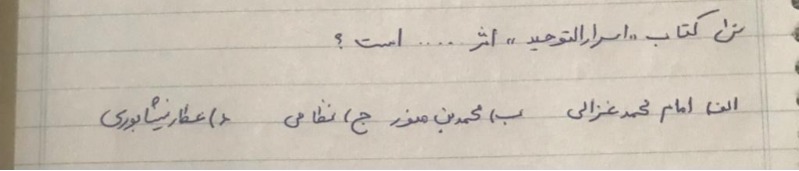 کتاب «اسرارالتوحید» اثر ..... است ؟
الف) امام محمد غزالی ب) محمدبن منور ج) نظامی د) عطار نیشابوری